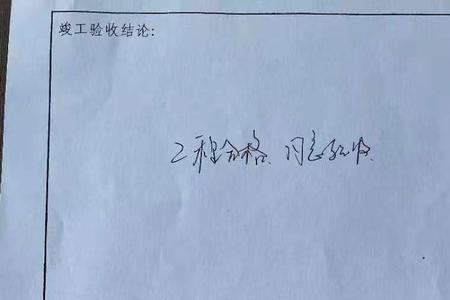 竣工验收结论:
工程合格、同意验收.